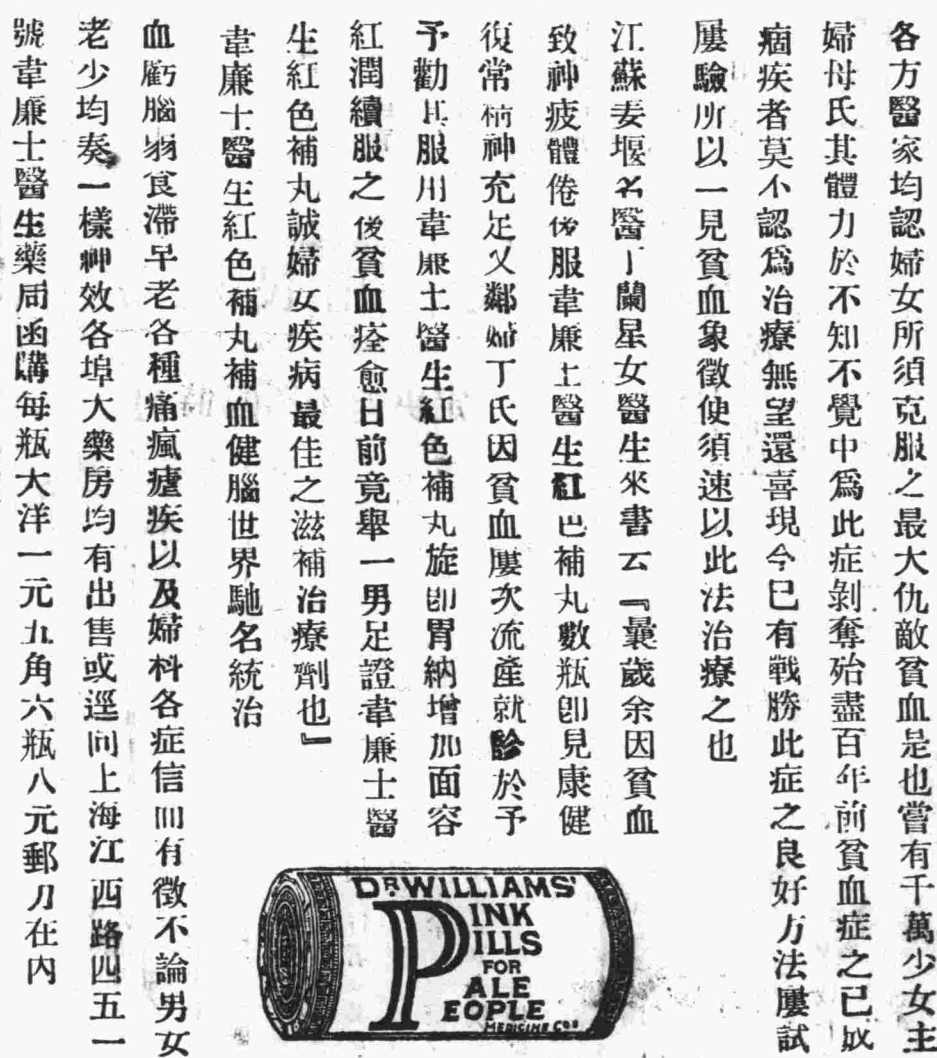 各方醫家均認婦女所須克服之最大仇敵貧血是也嘗有千萬少女主
婦母氏其體力於不知不覺中爲此症剝奪殆盡百年前貧血症之已成
痼疾者莫不認爲治療無望還喜現今已有戰勝此症之良好方法屢試
屢驗所以一見貧血象徵使須速以此法治療之也
江蘇姜堰名醫丁蘭星女醫生來書云『曩歲余因貧血
致神疲體倦後服韋廉士醫生紅色補丸數瓶卽見康健
復常精神充足又鄰婦丁氏因貧血屢次流產就診於予
予勸其服用韋廉士醫生紅色補丸旋卽胃納增加面容
紅潤續服之後貧血痊愈日前竟舉一男足證韋廉士醫
生紅色補丸誠婦女疾病最佳之滋補治療劑也』
韋廉士醫生紅色補丸補血健腦世界馳名統治
血虧腦弱食滯早老各種痛瘋瘧疾以及婦科各症信而有徵不論男女
老少均奏一樣神效各埠大藥房均有出售或逕向上海江西路四五一
號韋廉士醫生藥局函購每瓶大洋一元九角六瓶八元郵力在內
DR WILLIAMS'
PINK
PILLS
FOR
PALE
PEOPLE
MEDICINE Co